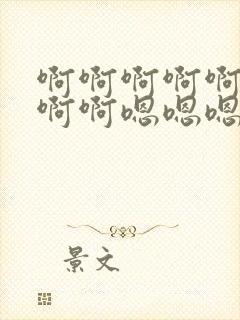 啊啊啊啊啊
啊啊嗯嗯嗯
景文